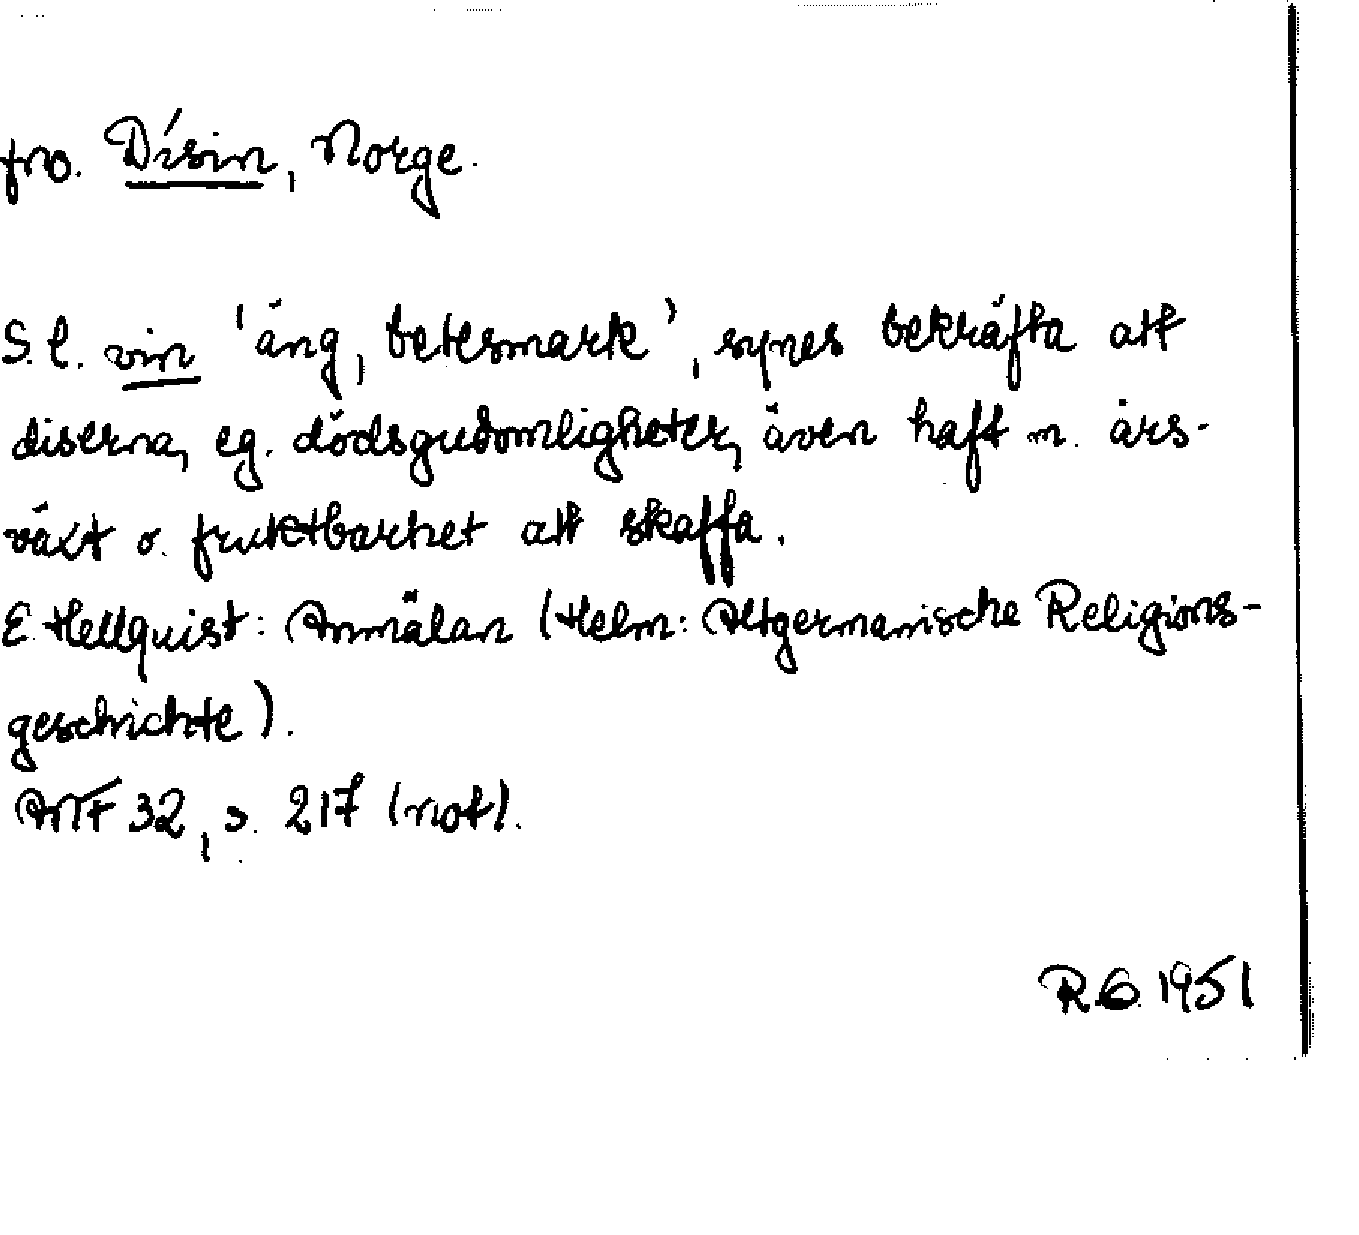 fno. Dísin, Norge.
S. l. vin 'äng, betesmark', synes bekräfta att
diserna, eg. dödsgudomligheter, även haft m. års-
växt o. fruktbarhet att skaffa.
E. Hellquist: Anmälan (Helm: Altgermanische Religions-
geschichte).
ANF 32, s. 217 (not).
R.G. 1951